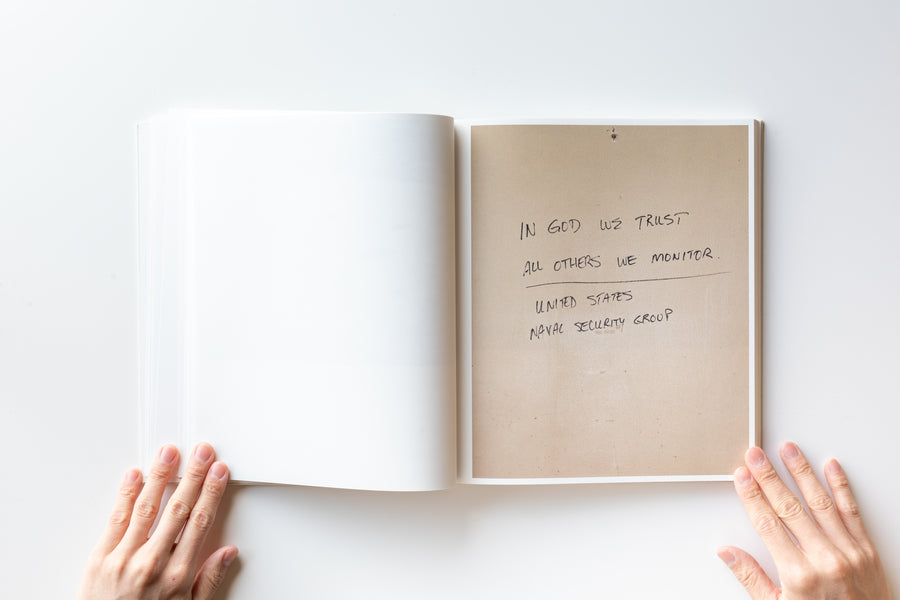 IN GOD WE TRUST
ALL OTHERS WE MONITOR.
UNITED STATES
NAVAL SECURITY GROUP